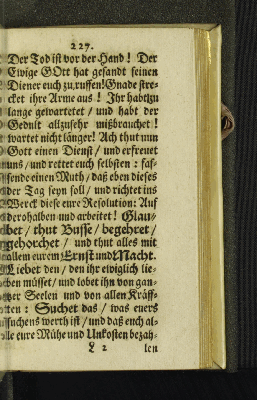 227.
Der Tod ist vor der Hand! Der
Ewige GOtt hat gesandt seinen
Diener euch zu ruffen! Gnade stre-
cket ihre Arme aus! Ihr habt zu
lange gewartetet / und habt der
Gedult allzusehr mißbrauchet!
wartet nicht länger! Ach thut nun
Gott einen Dienst / und erfreuet
uns / und rettet euch selbsten: fas-
sende einen Muth / daß eben dieses
der Tag seyn soll / und richtet ins
Werck diese eure Resolution: Auf
derohalben und arbeitet! Glau-
bet / thut Busse / begehret /
gehorchet / und thut alles mit
allem eurem Ernst und Macht.
Liebet den / den ihr ewiglich lie-
ben müsset / und lobet ihn von gan-
tzer Seelen und von allen Kräff-
ten: Suchet das / was euers
suchens werth ist / und daß euch al-
le eure Mühe und Unkosten bezah-
L 2 len